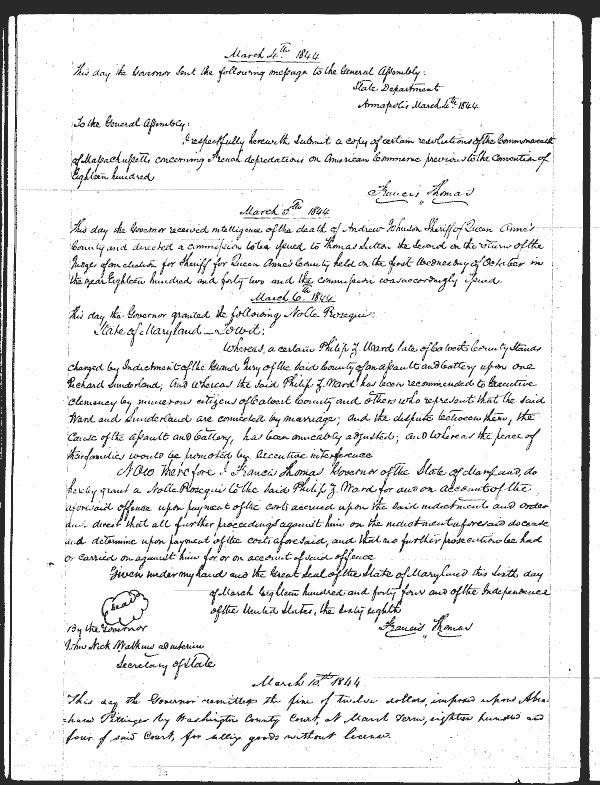 March 4th 1844
This day the Governor sent the following message to the General Assembly:
State Department
Annapolis March 4th 1844
To the General Assembly:
I respectfully herewith submit a copy of certain resolutions of the Commonwealth
of Massachusetts concerning French depredations on American Commerce previous to the Convention of
Eighteen hundred
Francis Thomas
March 5th 1844
This day the Governor received intelligence of the death of Andrew Sheriff of Queen Anne's
County and directed a commission to be issued to Thomas Sutton the Second on the return of the
Judges of election for Sheriff for Queen Anne's County held on the first Wednesday of October in
the year Eighteen hundred and forty two and the commission was accordingly issued.
March 6th 1844
This day the Governor granted the following Nolle Prosequi:
State of Maryland, To wit:
Whereas, a certain Philip Z. Ward late of Calvert County stands
charged by Indictment of the Grand Jury of the said County of an assault and battery upon one
Richard Sunderland; And whereas the said Philip Z. Ward has been recommended to Executive
clemency by numerous citizens of Calvert County and others who represent that the said
Ward and Sunderland are connected by marriage; and the dispute between them, the
cause of the assault and battery, has been amicably adjusted; and whereas the peace of
their families would be promoted by Executive interference
Now Therefore I Francis Thomas Governor of the State of Maryland, do
hereby grant a Nolle Prosequi to the said Philip Z. Ward for and on account of the
aforesaid offence upon payment of the costs accrued upon the said indictment and order
and direct that all further proceedings against him on the indictment aforesaid do cease
and determine upon payment of the costs aforesaid, and that no further prosecution be had
or carried on against him for or on account of said offence
Given under my hand and the Great Seal of the State of Maryland this sixth day
of March Eighteen hundred and forty four and of the Independence
of the United States, the sixty eighth
Seal
By the Governor
Francis Thomas
John Nick Watkins ad interim
Secretary of State
March 10th 1844
This day the Governor remitted the fine of twelve dollars, imposed upon Abra-
ham by Washington County Court, at March Term, eighteen hundred and
four of said Court, for selling goods without license.